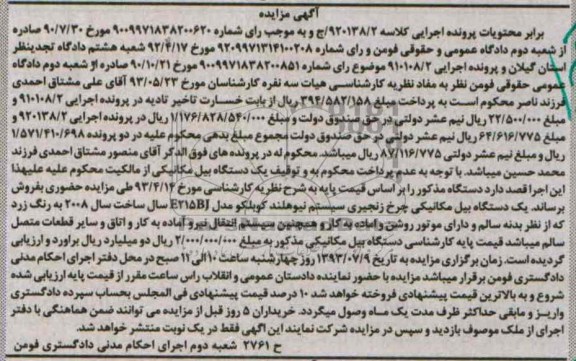 آگهی مزایده
برابر محتویات پرونده اجرایی کلاسه ۹۲۰۱۳۸/۲/ج و به موجب رای شماره ۹۰۰۹۹۷۱۸۳۸۲۰۰۶۲۰ مورخ ۹۰/۷/۳۰ صادره
از شعبه دوم دادگاه عمومی و حقوقی فومن و رای شماره ۹۲۰۹۹۷۱۳۱۴۱۰۰۲۰۸ مورخ ۹۲/۴/۱۷ شعبه هشتم دادگاه تجدیدنظر
استان گیلان و پرونده اجرایی ۹۱۰۱۰۸/۲ موضوع رای شماره ۹۰۰۹۹۷۱۸۳۸۲۰۰۸۵۱ مورخ ۹۰/۱۰/۲۱ صادره از شعبه دوم دادگاه
عمومی حقوقی فومن نظر به مفاد نظریه کارشناسی هیات سه نفره کارشناسان مورخ ۹۳/۰۵/۲۳ آقای علی مشتاق احمدی
فرزند ناصر محکوم است به پرداخت مبلغ ۳۹۴/۵۸۲/۱۵۸ ریال از بابت خسارت تاخیر تادیه در پرونده اجرایی ۹۱۰۱۰۸/۲ و
مبلغ ۲۲/۵۰۰/۰۰۰ ریال نیم عشر دولتی در حق صندوق دولت و مبلغ ۱/۱۷۶/۸۲۸/۵۴۰ ریال در پرونده اجرایی ۹۲۰۱۳۸/۲ و
مبلغ ۶۴/۶۱۶/۷۷۵ ریال نیم عشر دولتی در حق صندوق دولت مجموع مبلغ بدهی محکوم علیه در دو پرونده ۱/۵۷۱/۴۱۰/۶۹۸
ریال و مبلغ نیم عشر دولتی ۸۷/۱۱۶/۷۷۵ ریال میباشد. محکوم له در پرونده های فوق الذکر آقای منصور مشتاق احمدی فرزند
محمد حسین میباشد. با توجه به عدم پرداخت محکوم به و توقیف یک دستگاه بیل مکانیکی از مالکیت محکوم علیه علیهذا
این اجرا قصد دارد دستگاه مذکور را بر اساس قیمت پایه به شرح نظریه کارشناسی مورخ ۹۳/۴/۱۶ طی مزایده حضوری بفروش
برساند. یک دستگاه بیل مکانیکی چرخ زنجیری سیستم نیوهلند کوبلکو مدل E۲۱۵BJ سال ساخت سال ۲۰۰۸ به رنگ زرد
که از نظر بدنه سالم و دارای موتور روشن و آماده به کار و همچنین سیستم انتقال نیرو آماده به کار و اتاق و سایر قطعات متصل
سالم میباشد قیمت پایه کارشناسی دستگاه بیل مکانیکی مذکور به مبلغ ۲/۰۰۰/۰۰۰/۰۰۰ ریال دو میلیارد ریال برآورد و ارزیابی
گردیده است. زمان برگزاری مزایده به تاریخ ۱۳۹۳/۰۷/۹ روز چهارشنبه ساعت ۱۰ الی ۱۱ صبح در محل دفتر اجرای احکام مدنی
دادگستری فومن برقرار میباشد مزایده با حضور نماینده دادستان عمومی و انقلاب راس ساعت مقرر از قیمت پایه ارزیابی شده
شروع و به بالاترین قیمت پیشنهادی فروخته خواهد شد ۱۰ درصد قیمت پیشنهادی فی المجلس بحساب سپرده دادگستری
واریز و مابقی حداکثر ظرف مدت یک ماه وصول میگردد. خریداران ۵ روز قبل از مزایده می توانند ضمن هماهنگی با دفتر
اجرای از ملک موصوف بازدید و سپس در مزایده شرکت نمایند این آگهی فقط در یک نوبت منتشر خواهد شد.
ح ۲۷۶۱ شعبه دوم اجرای احکام مدنی دادگستری فومن